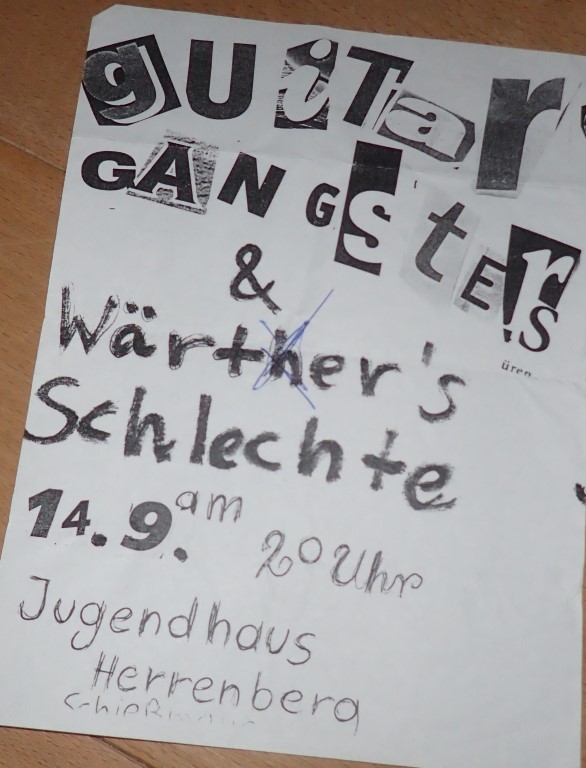 guiTar
GANGstERs
&
Wärther's
Schlechte
14.9. am 20 Uhr
Jugendhaus
Herrenberg